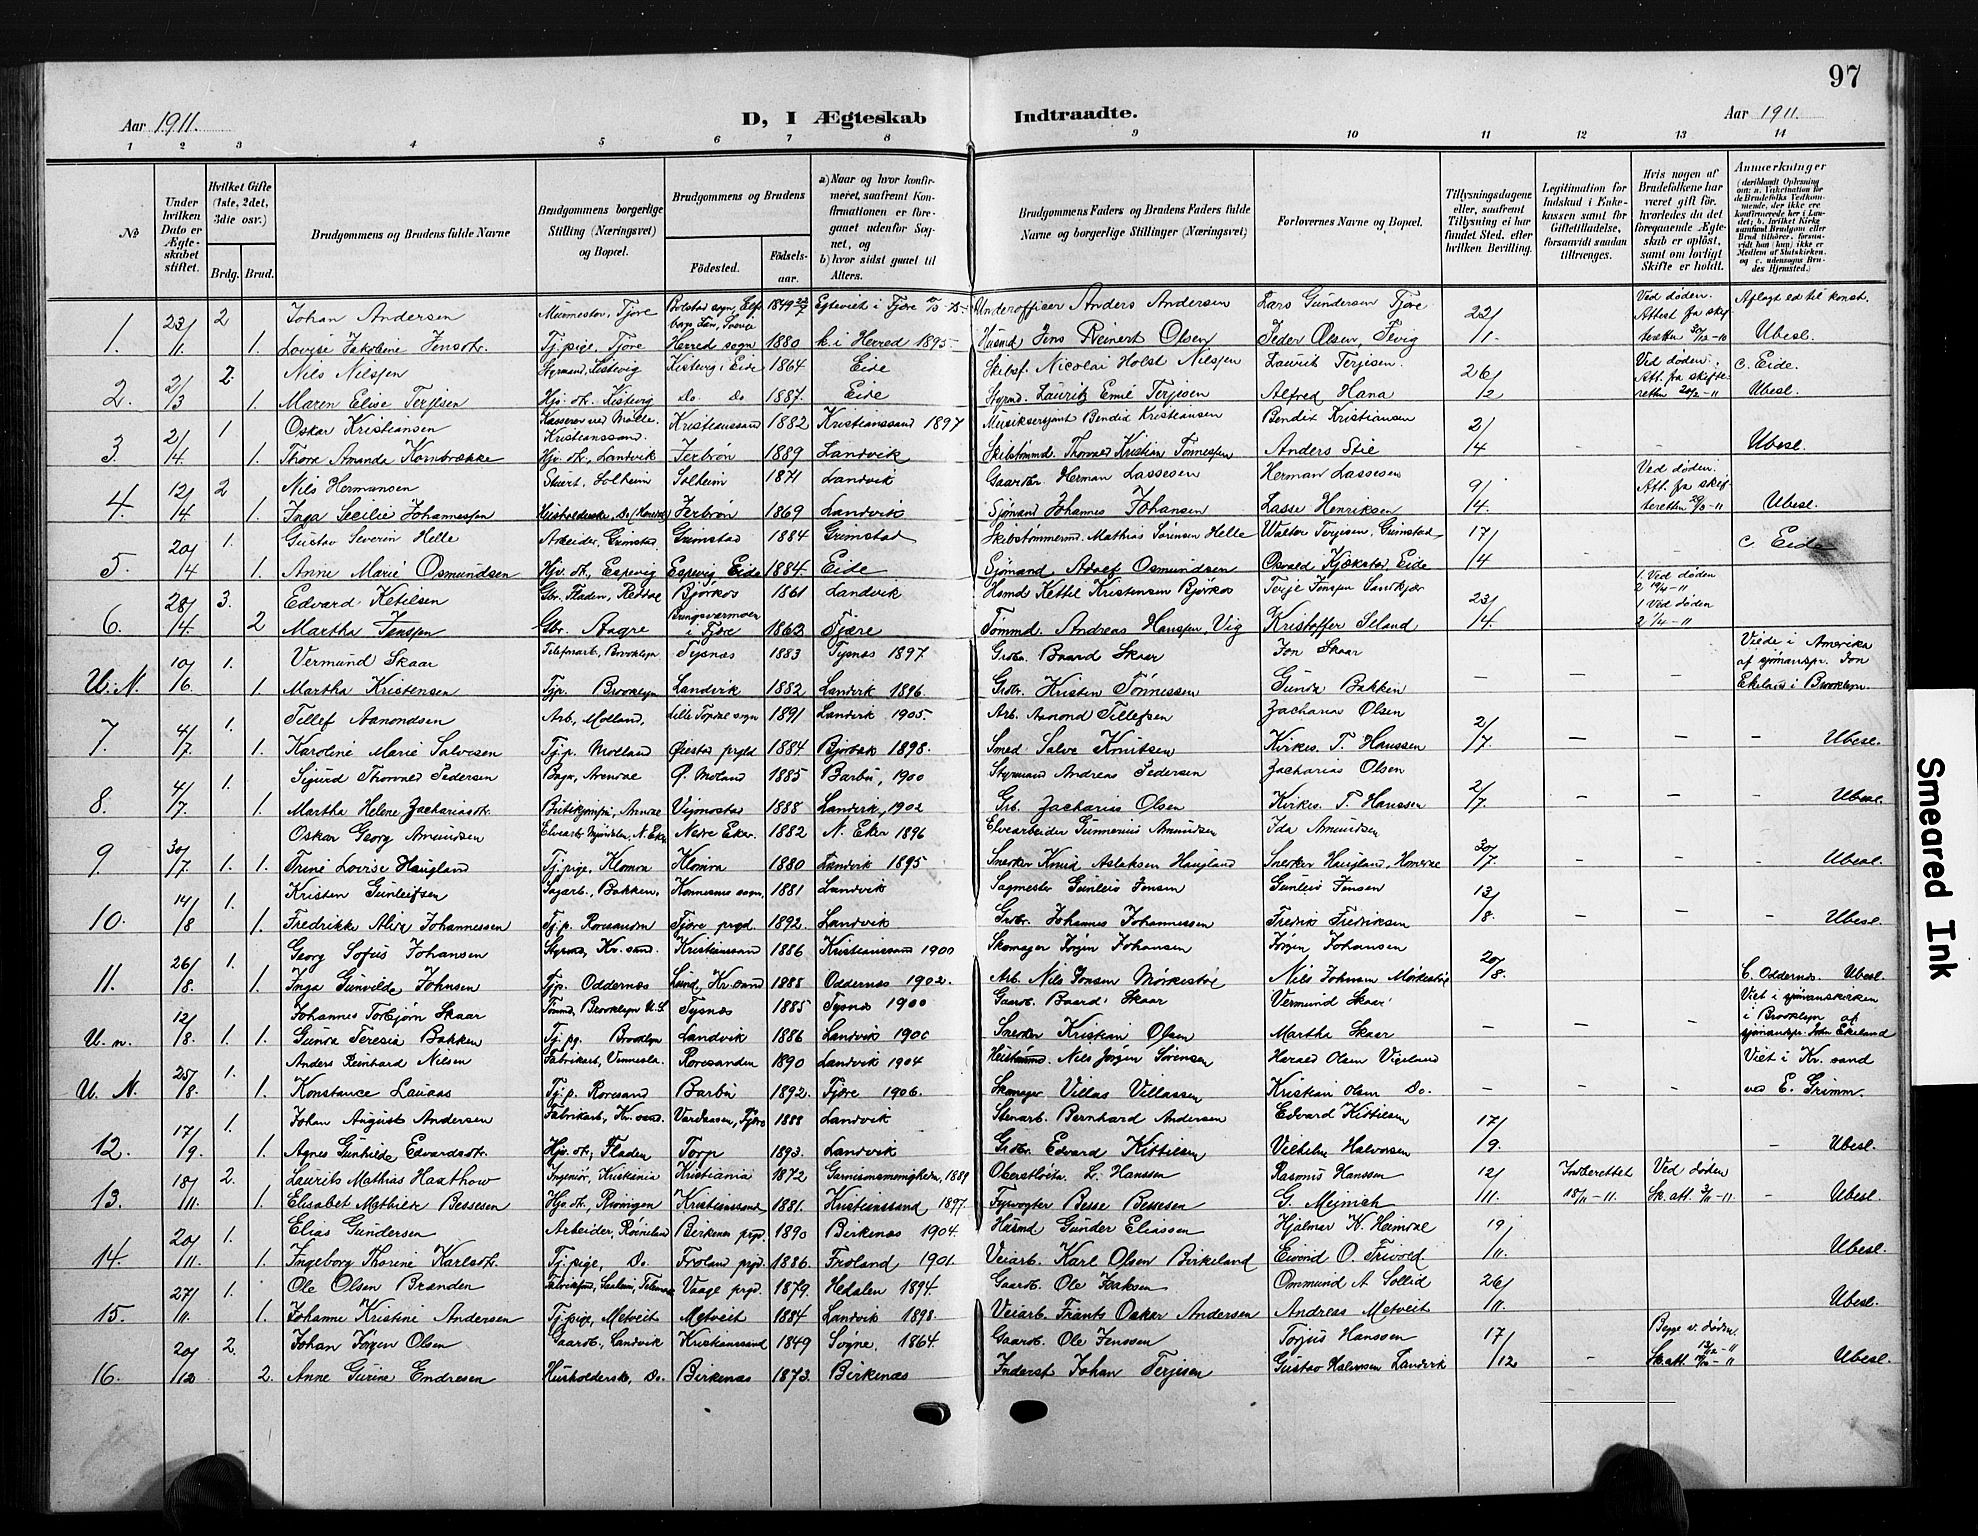 97
Aar 1911.
D, I Ægteskab
Indtraadte.
Aar 1911.
1 2 3 4 5 6 7 8 9 10 11 12 13 14
No
Under hvilken Dato er Ægteskabet stiftet.
Hvilket Gifte (1ste, 2det, 3die osv.)
Brdg. Brud.
Brudgommens og Brudens fulde Navne
Brudgommens borgerlige Stilling (Næringsvei) og Bopæl.
Brudgommens og Brudens
Födested.
Födselsaar.
a) Naar og hvor konfirmeret, saafremt Konfirmationen er foregaaet udenfor Sognet, og
b) hvor sidst gaaet til Alters.
Brudgommens Faders og Brudens Faders fulde Navne og borgerlige Stillinger (Næringsvei)
Forlovernes Navne og Bopæl.
Tillysningsdagene eller, saafremt Tillysning ei har fundet Sted, efter hvilken Bevilling.
Legitimation for Indskud i Enkekassen samt for Giftetilladelse, forsaavidt saadan tiltrænges.
Hvis nogen af Brudefolkene har været gift för, hvorledes da det foregaaende Ægteskab er oplöst, samt om lovligt Skifte er holdt.
Anmerkninger
1. 23/11 2 Johan Andersen Murmester, Fjære 1849 Underofficer Anders Andersen Lars Gundersen Fjære 22/1 Ved døden. Aflagt ed til konst.
1. Lovise Jakobine Jensdtr. Tj.pige, Fjære Herred sogn 1880 k. i Herred 1895 Husmd Jens Reinert Olsen Peder Olsen, Fevig Ubesl.
2. 2/3 2. Nils Nilssen Styrmand, Kistevig Kistevig i Eide 1864 Eide Skibsf. Nicolai Holst Nilssen Laurits Terjesen. 26/12 Ved døden. c. Eide.
1. Maren Elise Terjesen Hjv. dt. Kistevig Do. Do. 1887. Eide Styrmd. Lauritz Emil Terjesen Alfred Hana Ubesl.
3 2/4. 1 Oskar Kristiansen Kristianssand. Kristianssand 1882 Kristianssand 1897 Musiksergiant Bendix Kristiansen Bendix Kristiansen 2/4 - -
1. Thora Amanda Kornbrække Hjv. dt., Landvik Jerbrön 1889 Landvik Skibstømmd. Thorvald Kristian Tønnessen Anders Stie Ubesl.
4. 12/14. 2 Nils Hermansen Stuert, Solheim Solheim 1871 Landvik Gaardbr Herman Lassesen Herman Lassesen 9/14. Ved døden.
1. Inga Secilie Johannessen Jerbrön 1869 Landvik Sjömand Johannes Johansen Lasse Henriksen Ubesl.
5. 20/14 1. Gustav Severin Helle Arbeider, Grimstad. Grimstad 1884 Grimstad Skibstømmermd. Mathias Sörensen Helle Walter Terjesen, Grimstad 17/14 - - c. Eide
1. Anne Marie Osmundsen Hjv. dt., Espevig Espevig Eide 1884. Eide Sjömand Adolf Osmundsen Osvald Kjækstad, Eide
6. 28/14. 3. Edvard Ketelsen Gbr. Fladen, Reddal Bjorkos 1861 Landvik Husmd Kettil Kristensen Bjørkos Terje Jonsen Sandkjær 23/14. 1. Ved døden
2 Martha Jenssen Gbr. Aagre i Fjære 1862 Fjære Tømmd. Andreas Hanssen, Vig Kristoffer Seland 1 Ved døden
U. N. 10/6 1. Vermund Skaar Telefonarb., Brooklyn Tysnæs 1883 Tysnæs 1897 Grdbr. Baard Skaar Jon Skaar - - - Viede i Amerika
1. Martha Kristensen Tjp. Brooklyn Landvik 1882 Landvik 1896. Grdbr. Kristen Tönnessen Gunda Bakken af sjömandspr. Jon Ekeland i Brooklyn.
7. 4/7. 1. Tellef Aanondsen Arb, Molland, Lille Topdal sogn 1891 Landvik 1905. Arb. Aanond Tellefsen Zacharias Olsen 2/7. - - -
1. Karoline Marie Salvesen Tj.p. Molland Øiestad prgld 1884 Bjorbæk 1898. Smed Salve Knutsen Kirkes. T. Hanssen Ubesl.
8. 4/7. 1. Sigurd Thorvald Pedersen Bager, Arendal Ø. Moland 1885 Barbu, 1900 Styrmand Andreas Pedersen Zacharias Olsen 2/7. - - -
1. Martha Helene Zachariasdtr. Vignostad 1888 Landvik, 1902 Grb. Zacharius Olsen Kirkes. T. Hanssen Ubesl.
9. 30/7 1. 1. Oskar Georg Amundsen Nedre Eker. 1882 N. Eker 1896 Elvearbeider Gunnerius Amundsen Ida Amundsen 30/7. - - -
Trine Lovise Haugland Tj.pige, Klomra Klomra 1880 Landvik 1895 Snedker Knud Aslaksen Haugland Snedker Haugland, Ubesl.
10. 14/8 1. Kristen Gunleifsen Sagarb., Bakken, 1881 Landvik Sagmester Gunleiv Jensen Gunleiv Jensen 13/8. - - -
1. Fredrikke Alida Johannessen Tj.p. Roresanden Fjære prgd. 1892. Landvik Grdbr. Johannes Johannessen Fredrik Fredriksen Ubesl.
11. 26/8 1. Georg Sofus Johansen Styrmd, Kr. sand. Kristianssand 1886 Kristianssand 1900 Skomager Jørgen Johansen Jørgen Johansen 20/8.
1. Inga Gunvilde Johnsen Tjp. Oddernæs Lund, Kr. sand 1888 Oddernæs 1902. Arb. Nils Jonsen Mörkestöl Nils Johnsen Mörkestöl C. Oddernæs. Ubesl.
U. n. 12/8. 1. 1. Johannes Torbjørn Skaar Tømmd, Brooklyn U.S. Tysnæs 1885 Tysnæs 1900 Gaardb. Baard Skaar Vermund Skaar - - - Viet i sjömanskirken i Brooklyn af
Gunda Teresia Bakken Tj. pg. Brooklyn Landvik 1886 Landvik 1900 Snedker Kristian Olsen Martha Skaar sjömandspr. John Ekeland
U. N. 25/8. 1. Anders Reinhard Nilsen Fabrikarb., Vennesla. Roresanden 1890 Landvik 1904 Nils Jörgen Sörensen Harald Olsen Vigeland - - - Viet i Kr. sand
1. Konstance Lauaas Tj.p. Roresand Barbu 1892. Fjære 1906. Skomager Villas Villassen Kristian Olsen Do. ved E. Grimm.
12. 17/9. 1. Johan August Andersen Fabrikarb., Kr. sand. Vardaasen, Fjære 1888 Landvik Stenarb. Bernhard Andersen Edvard Kittilsen 17/9. -
1. Agnes Gunhilde Edvardsdtr. Hjv. dt., Fladen Torp 1893. Landvik Grdbr. Edvard Kittilsen Vilhelm Halvorsen Ubesl.
13. 18/11. 2. Laurits Mathias Haathow Ingeniør, Kristiania Kristiania 1872 Garnisonsmenigheden, 1889 Oberstløitn. L. Hanssen Rasmus Hanssen 12/11. Indberettet 18/11-11. Ved døden -
1. Elisabet Mathilde Bessesen Hjv. dt. Rivingen Kristianssand 1881. Kristianssand 1897. Fyrvogter Besse Bessesen G. Meinich Sk. att. 3/11-11 Ubesl.
14. 20/11. 1. Elias Gundersen Arbeider, Birkenæs prgd. 1890 Birkenæs 1904. Husmd Gunder Eliassen Hjalmar K. Heimdal 19/11.
1. Ingeborg Thorine Karlsdt. Tj. pige, Do. Froland prgd. 1886. Froland 1901. Veiarb. Karl Olsen Birkeland Eivind O. Trivold. Ubesl.
15. 27/11. 1. Ole Olsen Brænden Vaage prgd. 1879. Hedalen 1894. Gaardb. Ole Isaksen Ommund A. Sollid 26/11.
1. Johanne Kristine Andersen Tj.pige, Metveit Metveit 1884 Landvik 1898. Veiarb. Frants Oskar Andersen Andreas Metveit Ubesl.
16. 20/12 2. Johan Jörgen Olsen Gaardb., Landvik Kristianssand 1849 Søgne. 1864. Gaardb. Ole Jenssen Torjus Hanssen 17/12 - Begge v. døden.
2. Anne Gurine Endresen Husholderske, Do. Birkenæs 1873. Birkenæs Inderst Johan Terjesen Gustav Halvorsen Landvik Ubesl.
Smeared Ink